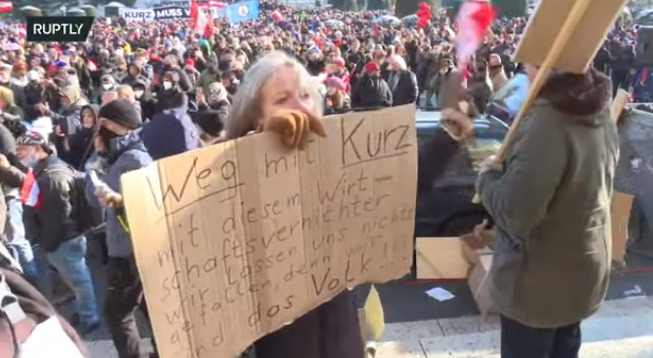 RUPTLY
KURZ MUSS
Weg mit Kurz
mit diesem Wirt-
schaftsvernichter
wir lassen uns nichts
gefallen, denn wir
sind das Volk!!!